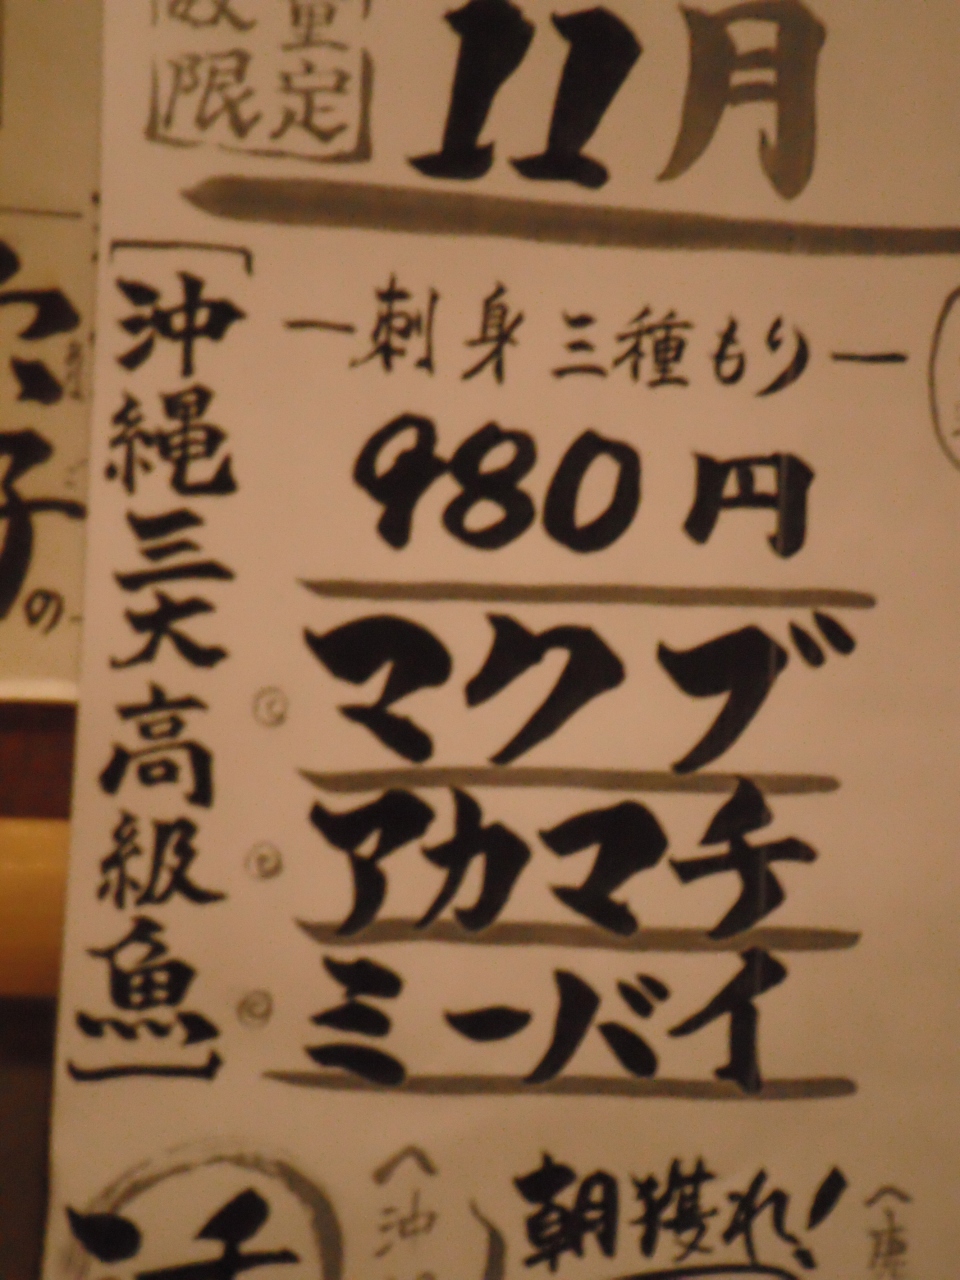 数量
限定
11月
「沖縄三大高級魚」
ー刺身三種もりー
980円
マクブ
アカマチ
ミーバイ
朝獲れ!
沖
子の